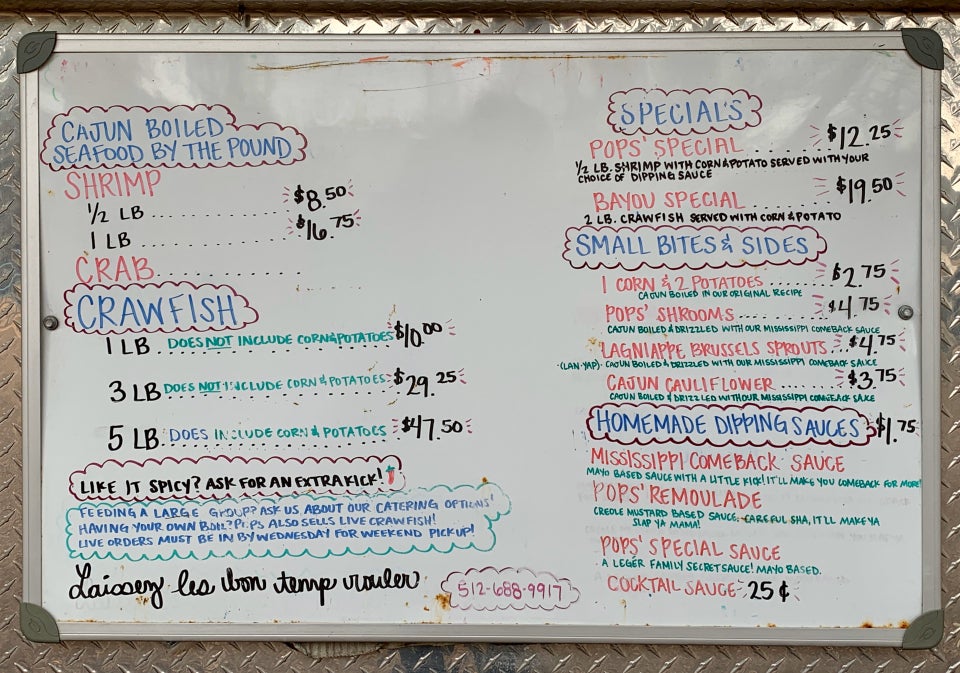 CAJUN BOILED
SEAFOOD BY THE POUND
SHRIMP
1/2 LB ............... $8.50
1 LB ............... $16.75
CRAB ...............
CRAWFISH
1 LB . DOES NOT INCLUDE CORN & POTATOES $10.00
3 LB DOES NOT INCLUDE CORN & POTATOES $29.25
5 LB. DOES INCLUDE CORN & POTATOES $47.50
LIKE IT SPICY? ASK FOR AN EXTRA KICK!
FEEDING A LARGE GROUP? ASK US ABOUT OUR CATERING OPTIONS!
HAVING YOUR OWN BOIL? POPS ALSO SELLS LIVE CRAWFISH!
LIVE ORDERS MUST BE IN BY WEDNESDAY FOR WEEKEND PICKUP!
Laissez les bon temp rouler
512-688-9917
SPECIAL'S
POPS' SPECIAL ........ $12.25
1/2 LB. SHRIMP WITH CORN & POTATO SERVED WITH YOUR
CHOICE OF DIPPING SAUCE
BAYOU SPECIAL ........ $19.50
2 LB. CRAWFISH SERVED WITH CORN & POTATO
SMALL BITES & SIDES
1 CORN & 2 POTATOES ...... $2.75
CAJUN BOILED IN OUR ORIGINAL RECIPE
POPS' SHROOMS ........ $4.75
CAJUN BOILED & DRIZZLED WITH OUR MISSISSIPPI COMEBACK SAUCE
LAGNIAPPE BRUSSELS SPROUTS... $4.75
(LAN·YAP)· CAJUN BOILED & DRIZZLED WITH OUR MISSISSIPPI COMEBACK SAUCE
CAJUN CAULIFLOWER ...... $3.75
CAJUN BOILED & DRIZZLED WITH OUR MISSISSIPPI COMEBACK SAUCE
HOMEMADE DIPPING SAUCES $1.75
MISSISSIPPI COMEBACK SAUCE
MAYO BASED SAUCE WITH A LITTLE KICK! IT'LL MAKE YOU COMEBACK FOR MORE!
POPS' REMOULADE
CREOLE MUSTARD BASED SAUCE. CAREFUL SHA, IT'LL MAKE YA
SLAP YA MAMA!
POPS' SPECIAL SAUCE
A LEGER FAMILY SECRET SAUCE! MAYO BASED.
COCKTAIL SAUCE 25¢